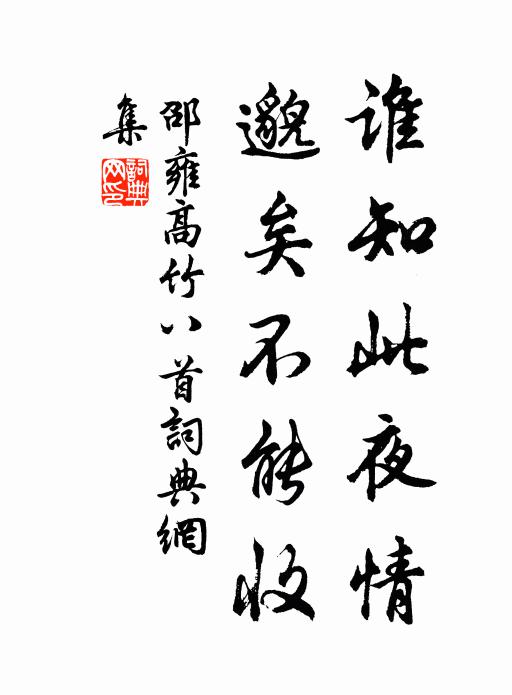 誰知此夜情
邈矣不能收
邵雍高竹八首詞典網
集
詞典網印